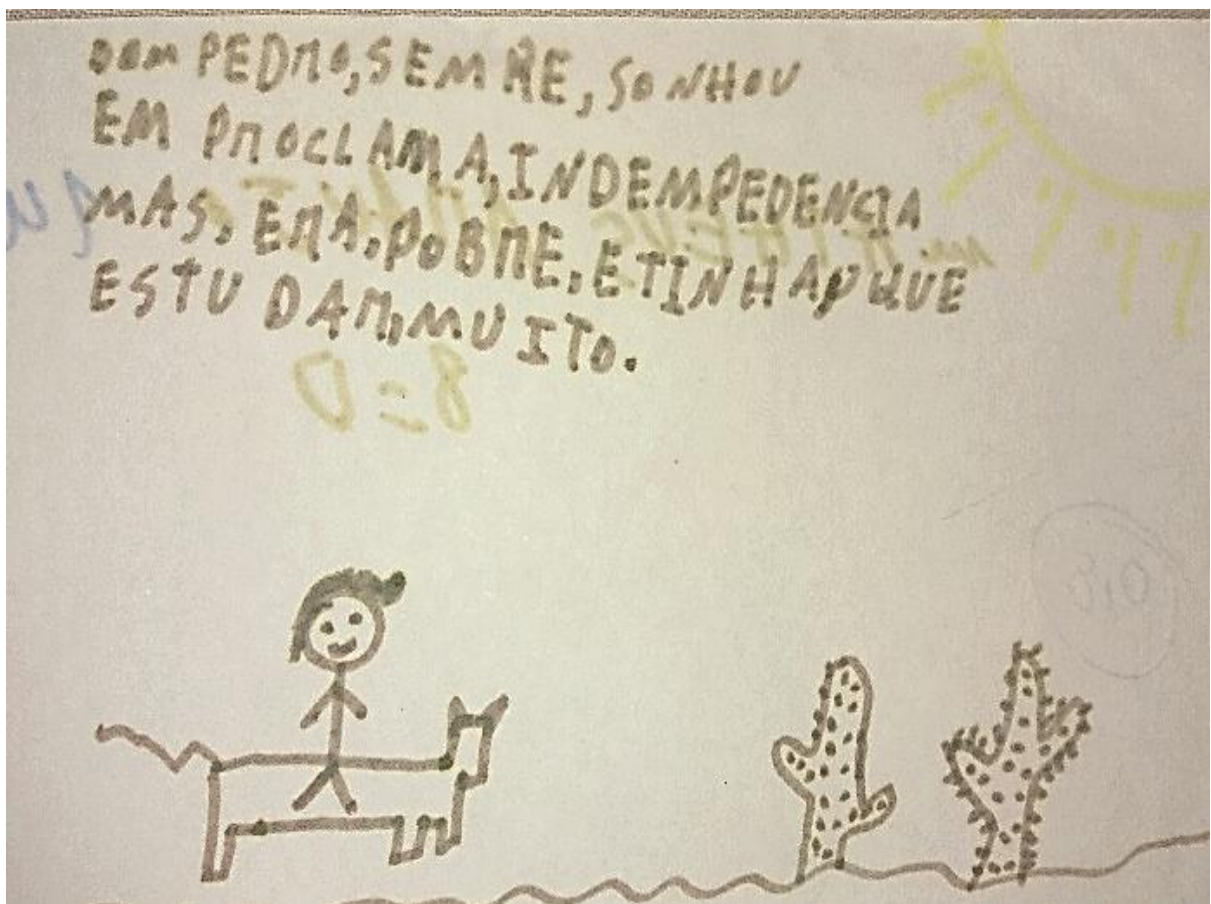 DOM PEDRO, SEMRE, SONHOU
EM PROCLAMA, INDEMPEDENCIA
MAS, ERA, POBRE, E TINHA QUE
ESTUDAR, MUITO.
8=D